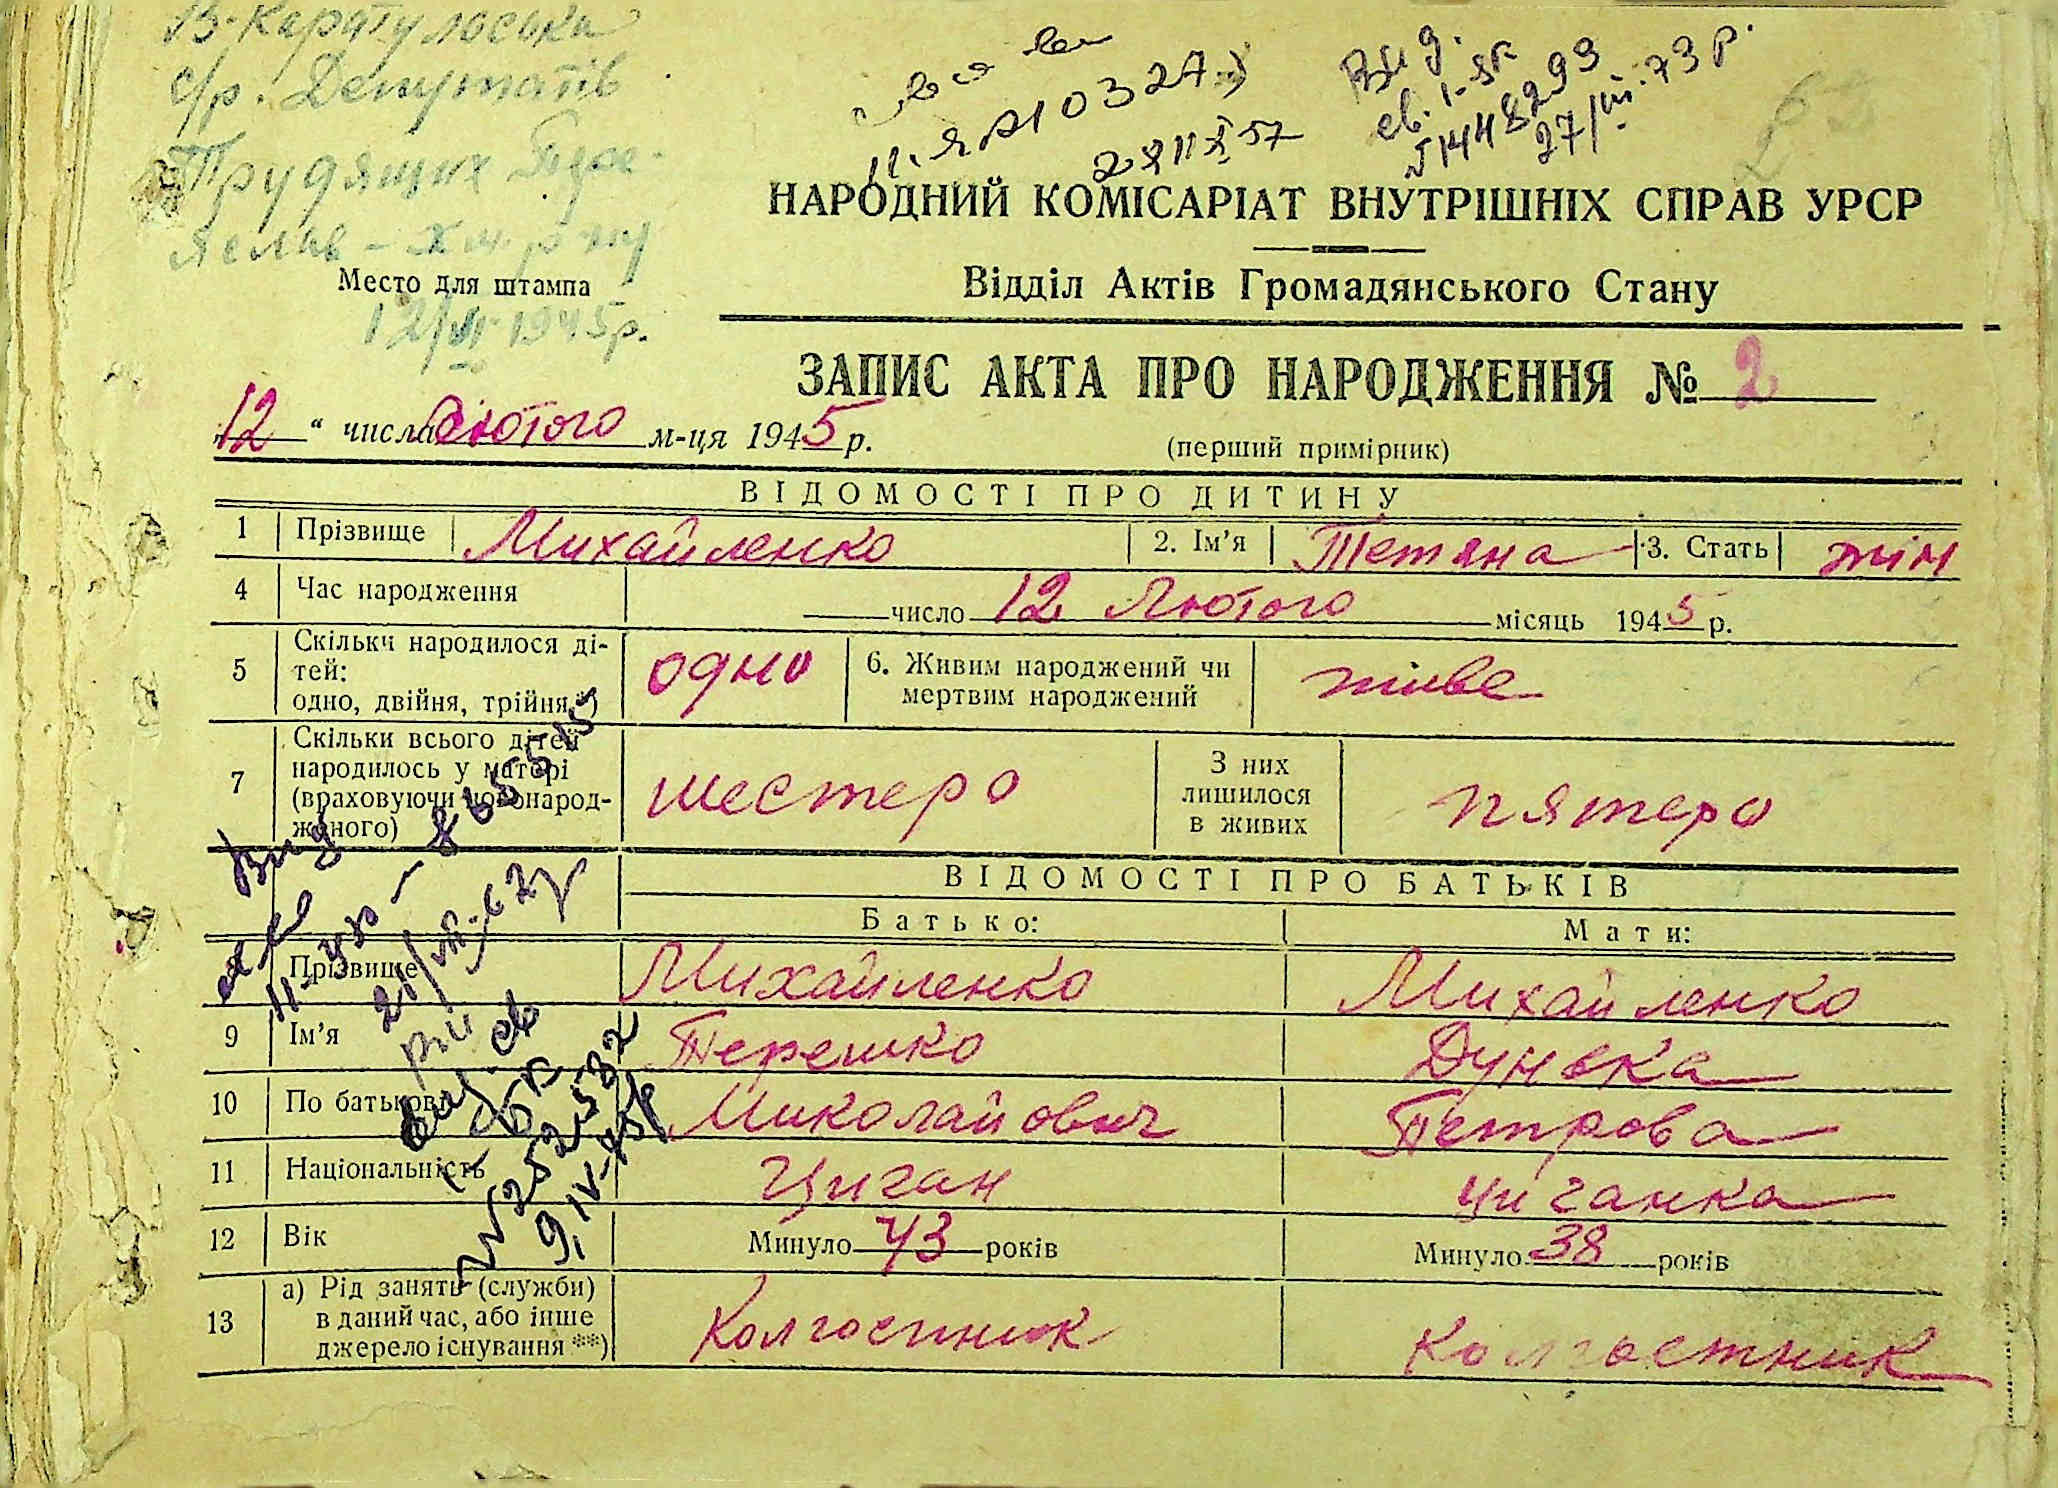 В-Каратульська
с/р. Депутатів
Трудящих Пере-
яслав-Хм. р-ну
Место для штампа
12/VI 1945р.
II-ЯР 10327
Вид.
св. I-
448293
27/III-73 р.
НАРОДНИЙ КОМІСАРІАТ ВНУТРІШНІХ СПРАВ УРСР
Відділ Актів Громадянського Стану
ЗАПИС АКТА ПРО НАРОДЖЕННЯ № 2
„12“ числа Лютого м-ця 1945 р.
(перший примірник)
ВІДОМОСТІ ПРО ДИТИНУ
1 Прізвище Михайленко 2. Ім'я Тетяна 3. Стать жін
4 Час народження число 12 Лютого місяць 1945 р.
5 Скільки народилося ді-
тей:
одно, двійня, трійня *)
одно
6. Живим народжений чи
мертвим народжений
живе
7 Скільки всього дітей
народилось у матері
(враховуючи новонарод-
женого)
шестеро
З них
лишилося
в живих
пятеро
ВІДОМОСТІ ПРО БАТЬКІВ
Батько: Мати:
8 Прізвище Михайленко Михайленко
9 Ім'я Терешко Дунька
10 По батькові Миколайович Петрова
11 Національність Циган циганка
12 Вік Минуло 43 років Минуло 38 років
13 а) Рід занять (служби)
в даний час, або інше
джерело існування **)
Колгоспник колгоспник
Вид
865515
21/VII-62р
Вид св
№ 252532
9/IV-